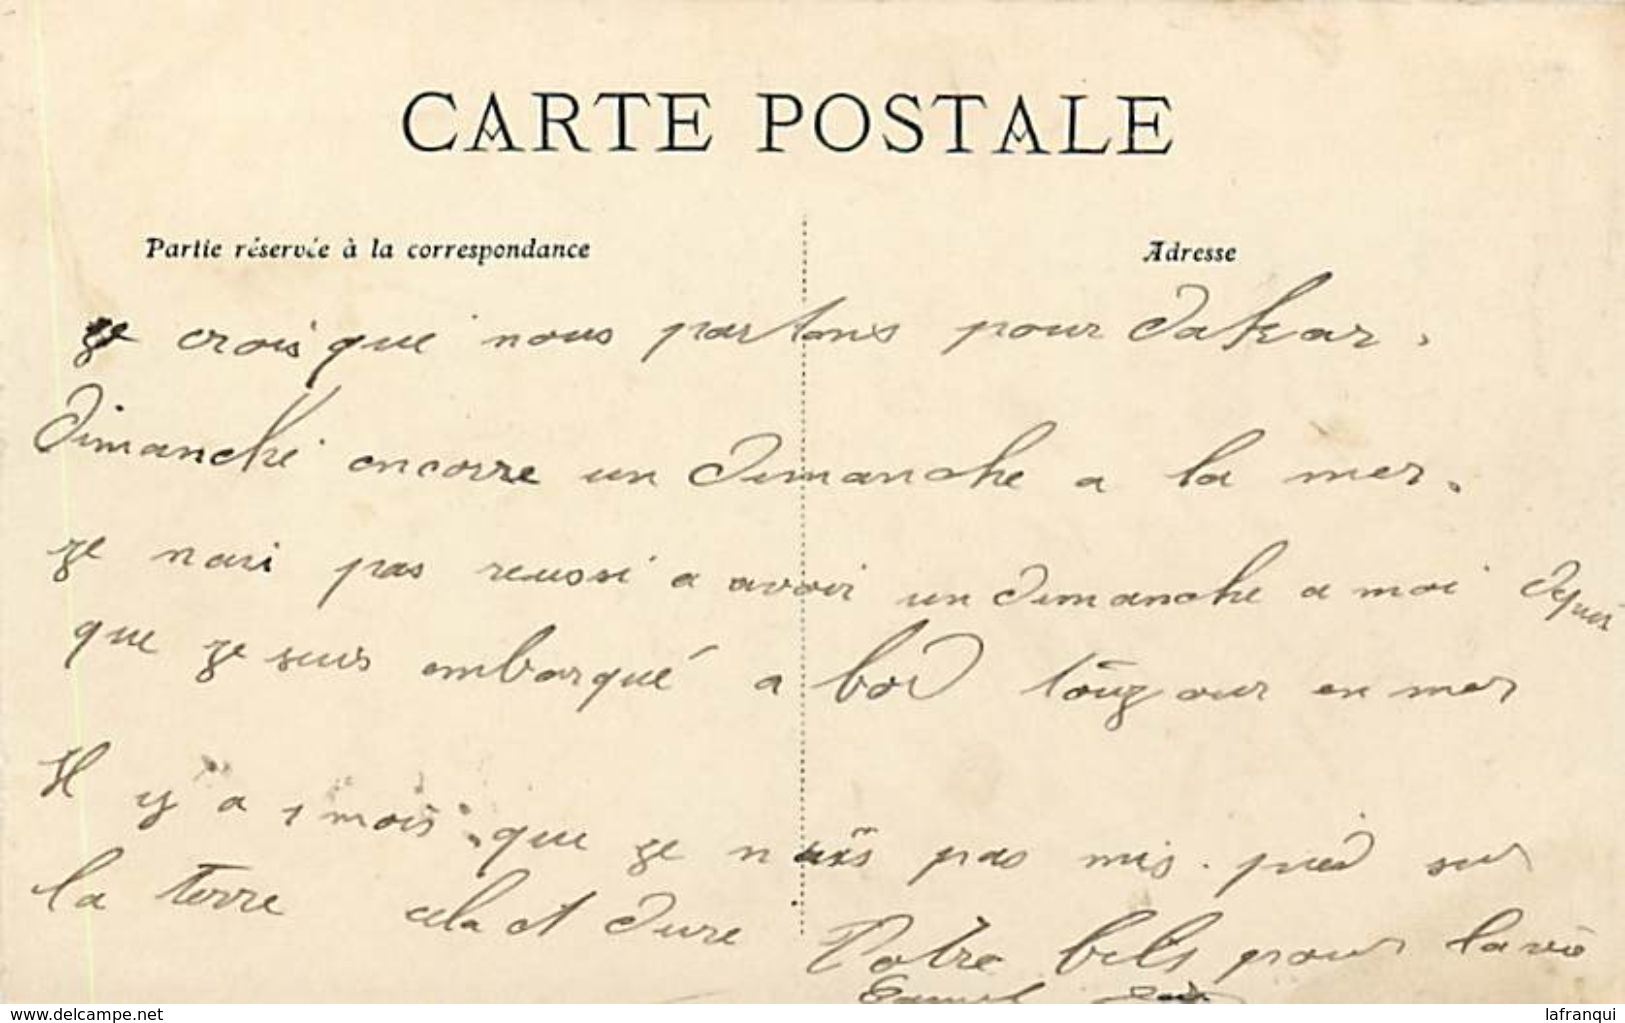 CARTE POSTALE
Partie réservée à la correspondance
Adresse
je crois que nous partons pour Dakar.
Dimanche encorre un Dimanche a la mer.
je nai pas reussi a avoir un Dimanche a moi depuis
que je suis embarqué a bord toujour en mer
Il y a 1 mois que je nais pas mis pied sur
la terre cela et dure
Votre fils pour la vie
delcampe.net
lafranqui